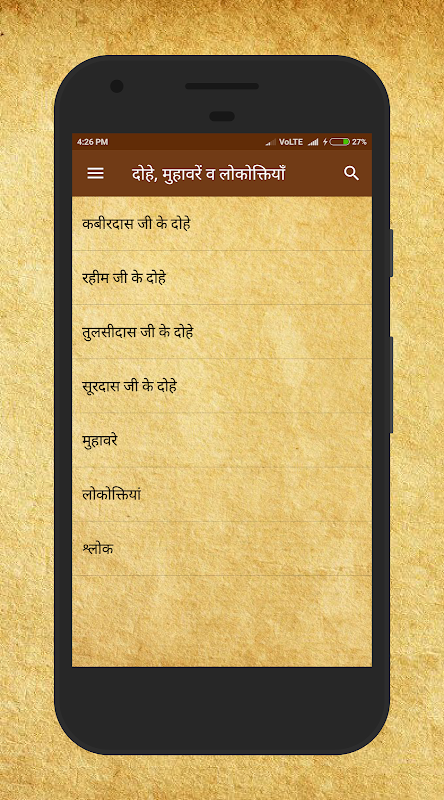 4:26 PM VoLTE 27%
दोहे, मुहावरें व लोकोक्तियाँ
कबीरदास जी के दोहे
रहीम जी के दोहे
तुलसीदास जी के दोहे
सूरदास जी के दोहे
मुहावरे
लोकोक्तियां
श्लोक